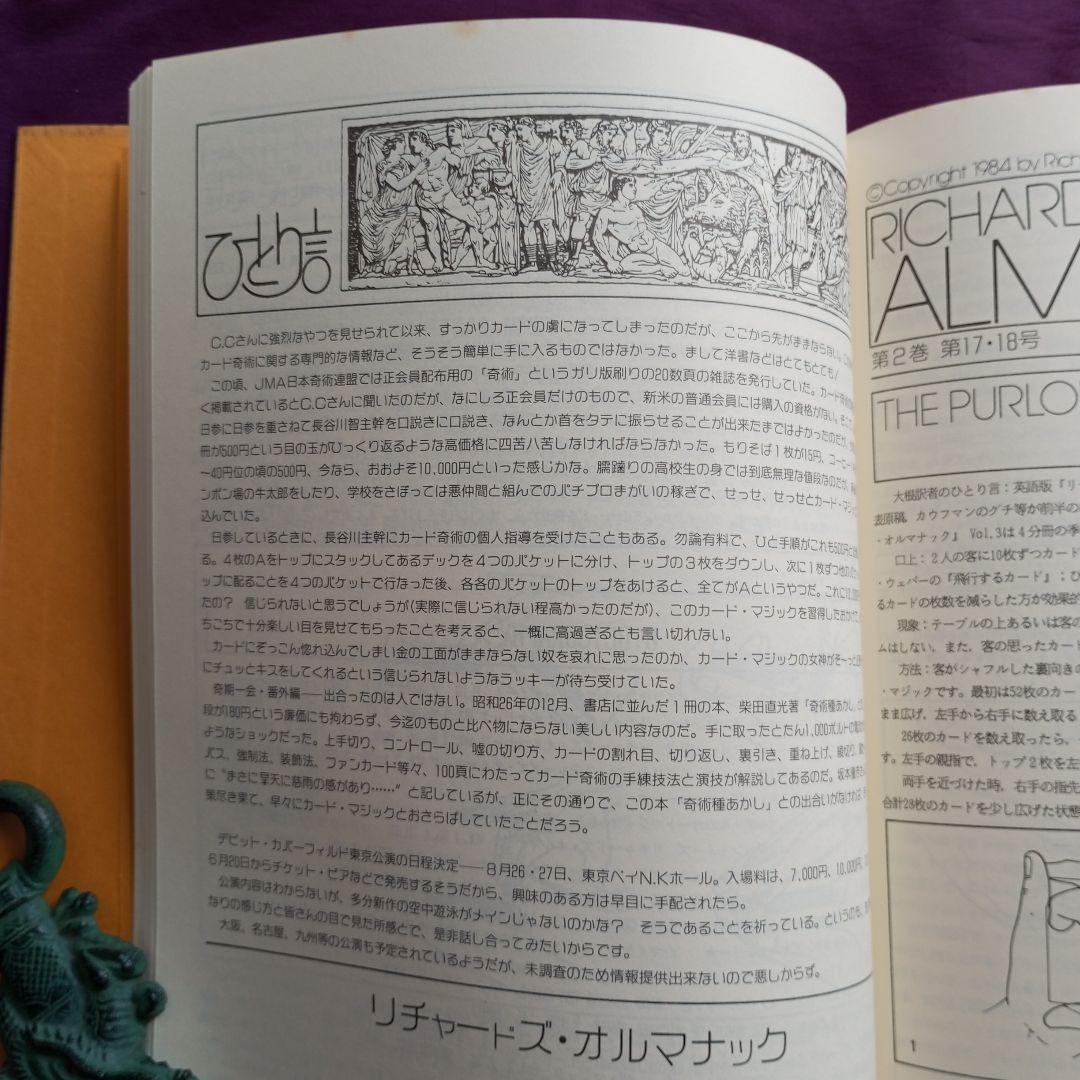 ひとり言
C.Cさんに強烈なやつを見せられて以来、すっかりカードの虜になってしまったのだが、ここから先がままならない。
カード奇術に関する専門的な情報など、そうそう簡単に手に入るものではなかった。まして洋書などはとてもとても/
この頃、JMA日本奇術連盟では正会員配布用の「奇術」というガリ版刷りの20数頁の雑誌を発行していた。カード奇術
く掲載されているとC.Cさんに聞いたのだが、なにしろ正会員だけのもので、新米の普通会員には購入の資格がない。そこ
日参に日参を重ねて長谷川智主幹を口説きに口説き、なんとか首をタテに振らせることが出来たまではよかったのだが、
冊が500円という目の玉がひっくり返るような高価格に四苦八苦しなければならなかった。もりそば1枚が15円、コーヒー
〜40円位の頃の500円、今なら、おおよそ10,000円といった感じかな。臑齧りの高校生の身では到底無理な値段なのだが、
ンポン場の牛太郎をしたり、学校をさぼっては悪仲間と組んでのパチプロまがいの稼ぎで、せっせ、せっせとカード・マジック
込んでいた。
日参しているときに、長谷川主幹にカード奇術の個人指導を受けたこともある。勿論有料で、ひと手順がこれも500円と
る。4枚のAをトップにスタックしてあるデックを4つのパケットに分け、トップの3枚をダウンし、次に1枚ずつ他の
ップに配ることを4つのパケットで行なった後、各各のパケットのトップをあけると、全てがAというやつだ。これに10,000
たの? 信じられないと思うでしょうが(実際に信じられない程高かったのだが)、このカード・マジックを習得したおかげで、
ちこちで十分楽しい目を見せてもらったことを考えると、一概に高過ぎるとも言い切れない。
カードにぞっこん惚れ込んでしまい金の工面がままならない奴を哀れに思ったのか、カード・マジックの女神がそ〜っと
にチュッとキスをしてくれるという信じられないようなラッキーが待ち受けていた。
奇期一会・番外編——出合ったのは人ではない。昭和26年の12月、書店に並んだ1冊の本、柴田直光著「奇術種あかし」
段が180円という廉価にも拘わらず、今迄のものと比べ物にならない美しい内容なのだ。手に取ったとたん1,000ボルトの
ようなショックだった。上手切り、コントロール、嘘の切り方、カードの割れ目、切り返し、裏引き、重ね上げ、綾切り、
パス、強制法、装飾法、ファンカード等々、100頁にわたってカード奇術の手練技法と演技が解説してあるのだ。
に“まさに旱天に慈雨の感があり……”と記しているが、正にその通りで、この本「奇術種あかし」との出合いがなければ、
果尽き果て、早々にカード・マジックとおさらばしていたことだろう。
デビット・カパーフィルド東京公演の日程決定——8月26・27日、東京ベイN.Kホール。入場料は、7,000円、10,000円、
6月20日からチケット・ピアなどで発売するそうだから、興味のある方は早目に手配されたら。
公演内容はわからないが、多分新作の空中遊泳がメインじゃないのかな? そうであることを祈っている。というのも、
なりの感じ方と皆さんの目で見た所感とで、是非話し合ってみたいからです。
大阪、名古屋、九州等の公演も予定されているようだが、未調査のため情報提供出来ないので悪しからず。
リチャードズ・オルマナック
©Copyright 1984 by Rich
RICHARD
ALM
第2巻 第17・18号
THE PURLO
大根訳者のひとり言：英語版『リ
表原稿、カウフマンのグチ等が前半の
・オルマナック』 Vol.3は4分冊の季
口上：2人の客に10枚ずつカード
・ウェバーの『飛行するカード』；ひ
るカードの枚数を減らした方が効果的
現象：テーブルの上あるいは客の
ムはしない、また、客の思ったカード
方法：客がシャフルした裏向きの
・マジックです。最初は52枚のカー
まま広げ、左手から右手に数え取る
26枚のカードを数え取ったら、
す。左手の親指で、トップ2枚を左
両手を近づけた時、右手の指先
合計28枚のカードを少し広げた状態
1